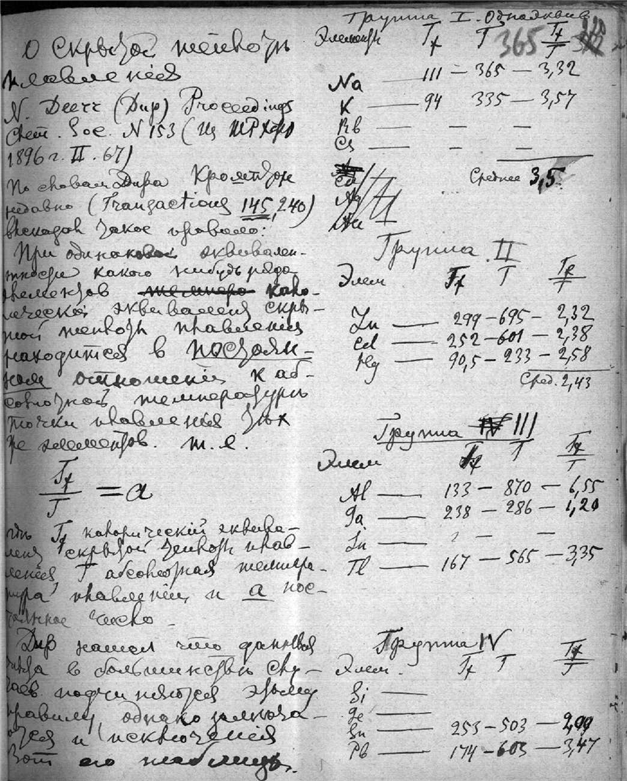 О скрытой теплоте
плавленія
N. Deerr (Дир) Proceedings
Chem. Soc. N 153 (Из ЖРХФО
1896 г. II. 67)
По словам Дира Кромптон
недавно (Transactions 145, 240)
такое правило:
При одинаковой эквивалент-
ности какого нибудь ряда
элементов кало-
рический эквивалент скры-
той теплоты плавления
находится в постоян-
ном отношеніи к аб-
солютной температуре
точки плавленія этих
же элементов. т. е.
Tf/T = a
где Tf калорический эквива-
лент скрытой теплоты плав-
ления T абсолютная темпера-
тура плавленія и a пос-
тоянное число.
Дир нашел что
в большинстве слу-
чаев подчиняются этому
правилу однако
и исключения
Вот его таблица.
Группа I.
365
Элементы Tf T Tf/T
Na — 111 — 365 — 3,32
K — 94 335 — 3,57
Rb — — —
Cs — — —
Среднее 3,5
Группа II
Элем Tf T Tf/T
Zn — 299 — 695 — 2,32
Cd — 252 — 601 — 2,38
Hg — 90,5 — 233 — 2,58
Сред. 2,43
Группа III
Элем Tf T Tf/T
Al — 133 — 870 — 6,55
Ga — 238 — 286 — 1,20
In — ? — —
Tl — 167 — 565 — 3,35
Группа IV
Элем. Tf T Tf/T
Si —
Ge —
Sn — 253 — 503 — 2,99
Pb — 174 — 603 — 3,47